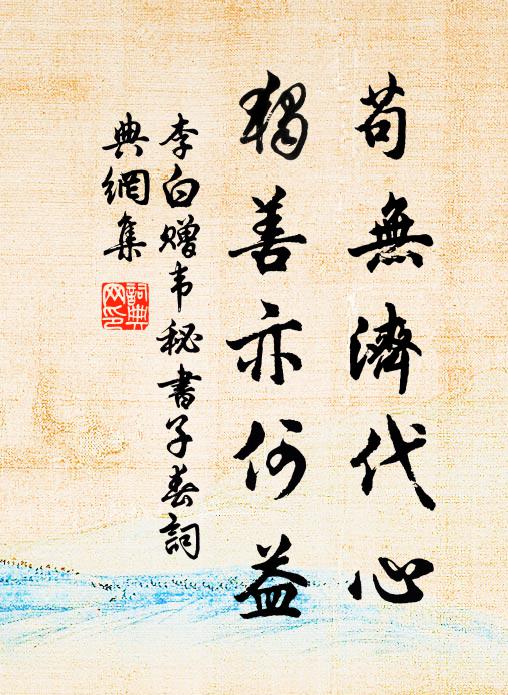 苟無濟代心
獨善亦何益
李白贈韦秘書子春詞
典網集
詞典
网印